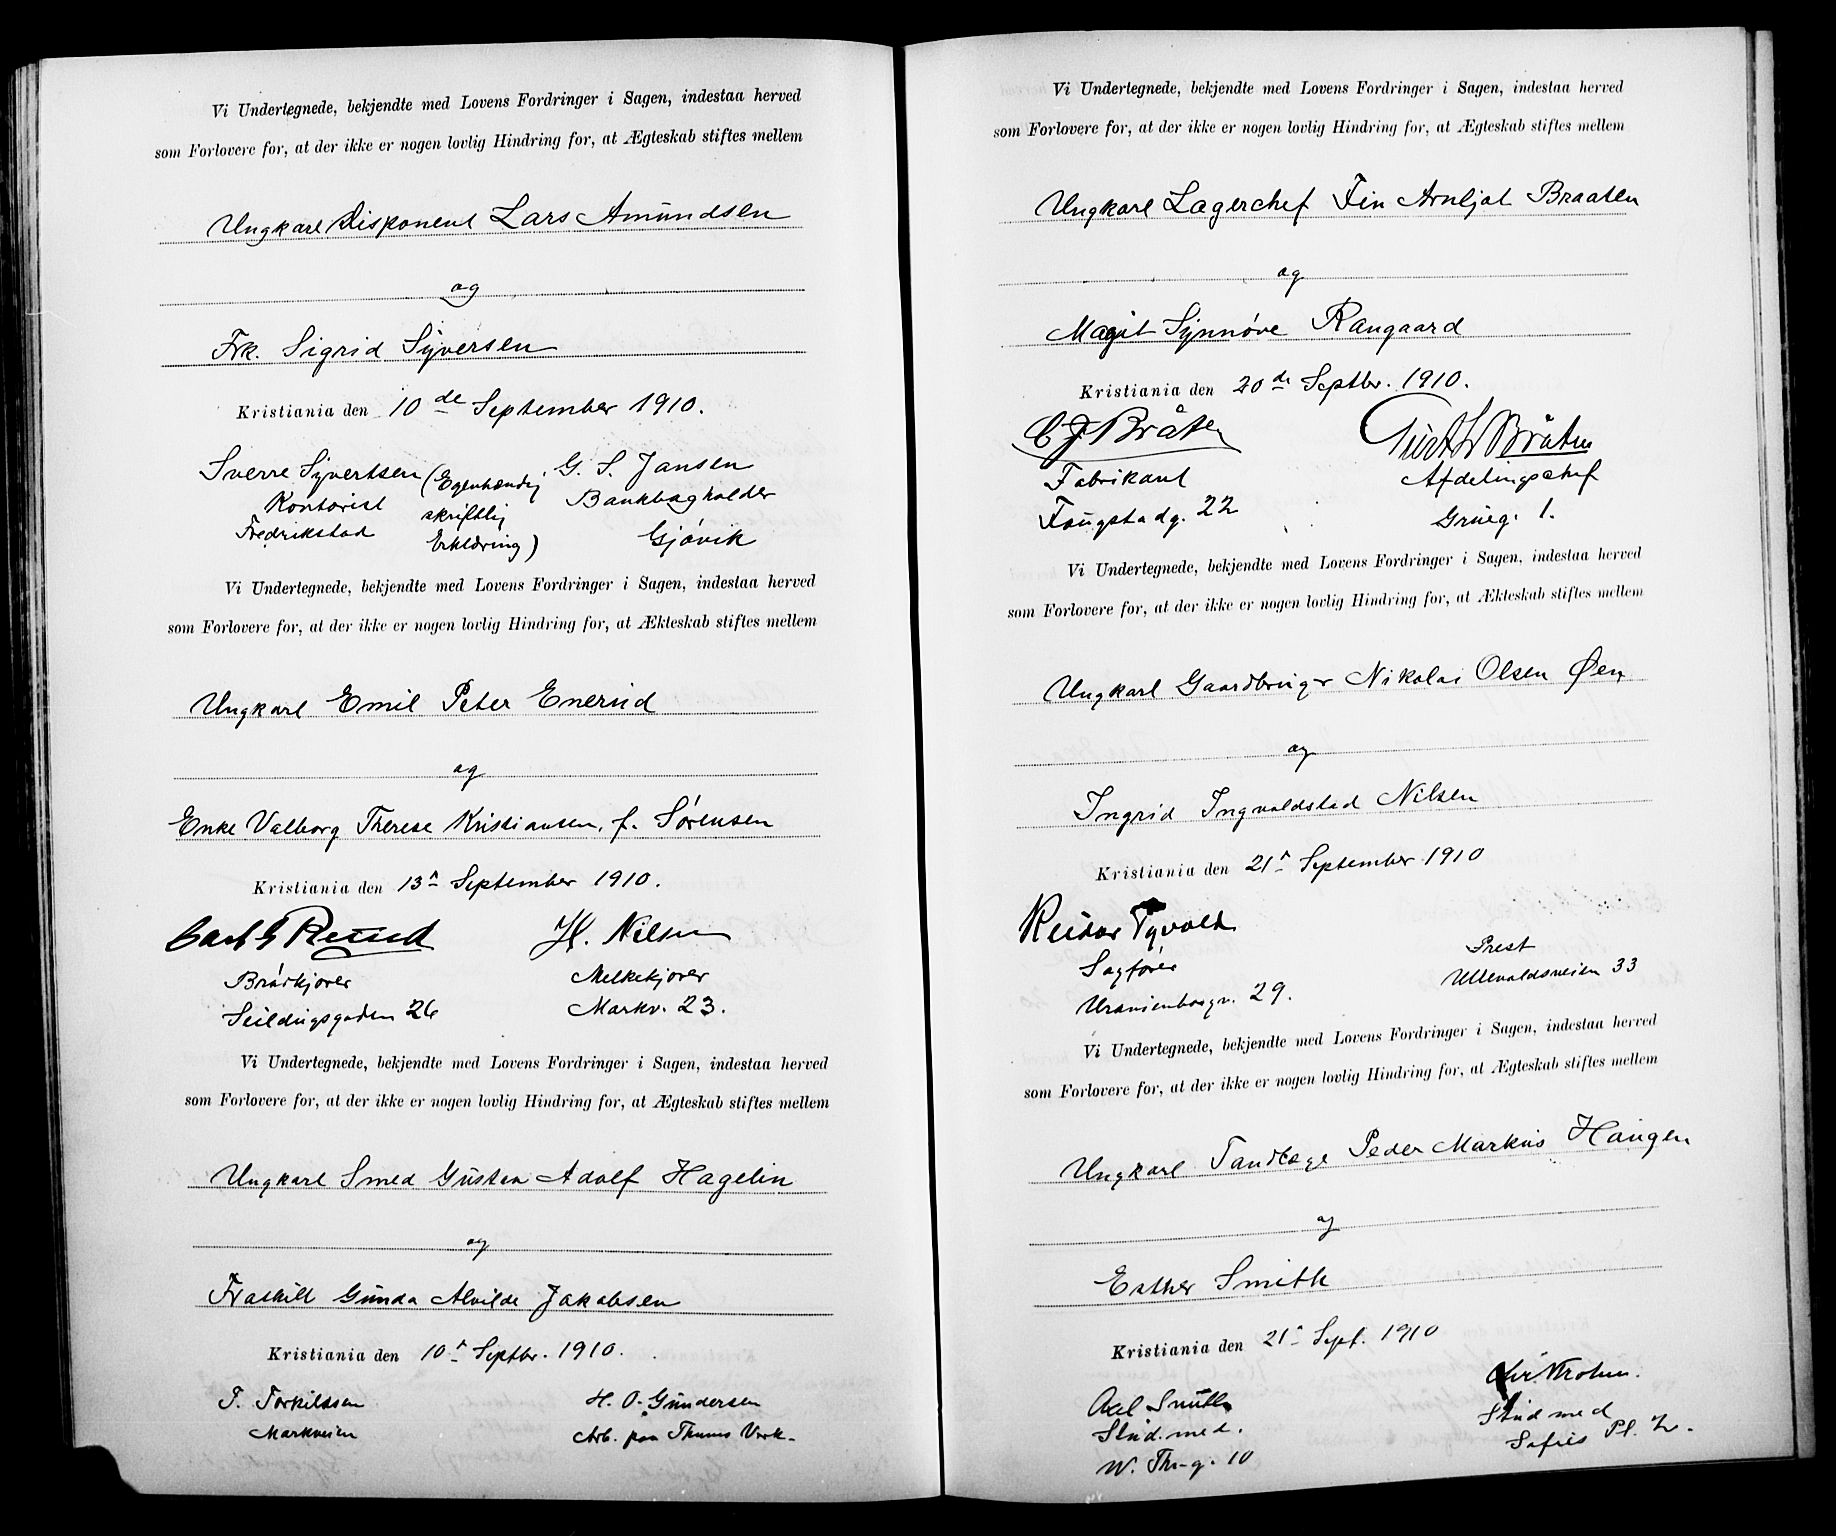 Vi Undertegnede, bekjendte med Lovens Fordringer i Sagen, indestaa herved
som Forlovere for, at der ikke er nogen lovlig Hindring for, at Ægteskab stiftes mellem
Ungkarl Disponent Lars Amundsen
og
Frk. Sigrid Syversen
Kristiania den 10de September 1910.
Sverre Syvertsen (Egenhændig G. S. Jansen
Kontorist skriftlig Bankbogholder
Fredrikstad Erklæring) Gjövik
Vi Undertegnede, bekjendte med Lovens Fordringer i Sagen, indestaa herved
som Forlovere for, at der ikke er nogen lovlig Hindring for, at Ækteskab stiftes mellem
Ungkarl Emil Peter Enerud
og
Enke Valborg Therese Kristiansen, f. Sørensen
Kristiania den 13n September 1910.
Carl G H. Nilsen
Brödkjører Melkekjører
Seildugsgaden 26 Markv. 23.
Vi Undertegnede, bekjendte med Lovens Fordringer i Sagen, indestaa herved
som Forlovere for, at der ikke er nogen lovlig Hindring for, at Ægteskab stiftes mellem
Ungkarl Smed Gustav Adolf Hagelin
og
Fraskilt Gunda Alvilde Jakobsen
Kristiania den 10n Septbr. 1910.
T. Torkildsen H. O. Gundersen
Markveien Arb. paa Thunes Verk.
Vi Undertegnede, bekjendte med Lovens Fordringer i Sagen, indestaa herved
som Forlovere for, at der ikke er nogen lovlig Hindring for, at Ægteskab stiftes mellem
Ungkarl Lagerchef Fin Arnljot Braaten
og
Magit Synnøve Rangaard
Kristiania den 20de Septbr. 1910.
C J Bråten Bråten
Fabrikant Afdelingschef
Fougstadg. 22 Grüeg. 1.
Vi Undertegnede, bekjendte med Lovens Fordringer i Sagen, indestaa herved
som Forlovere for, at der ikke er nogen lovlig Hindring for, at Ækteskab stiftes mellem
Ungkarl Gaardbruger Nikolai Olsen Øen
og
Ingrid Ingvaldstad Nilsen
Kristiania den 21n September 1910
Reidar Tyvold Prest
Sagfører Ullevoldsveien 33
Uranienborgv. 29.
Vi Undertegnede, bekjendte med Lovens Fordringer i Sagen, indestaa herved
som Forlovere for, at der ikke er nogen lovlig Hindring for, at Ægteskab stiftes mellem
Ungkarl Tandlæge Peder Markus Haugen
og
Esther Smith
Kristiania den 21n Sept. 1910
Axel Smith
Stud. med. Stud med
W. Thr-g. 10 Sofies Pl. 2.